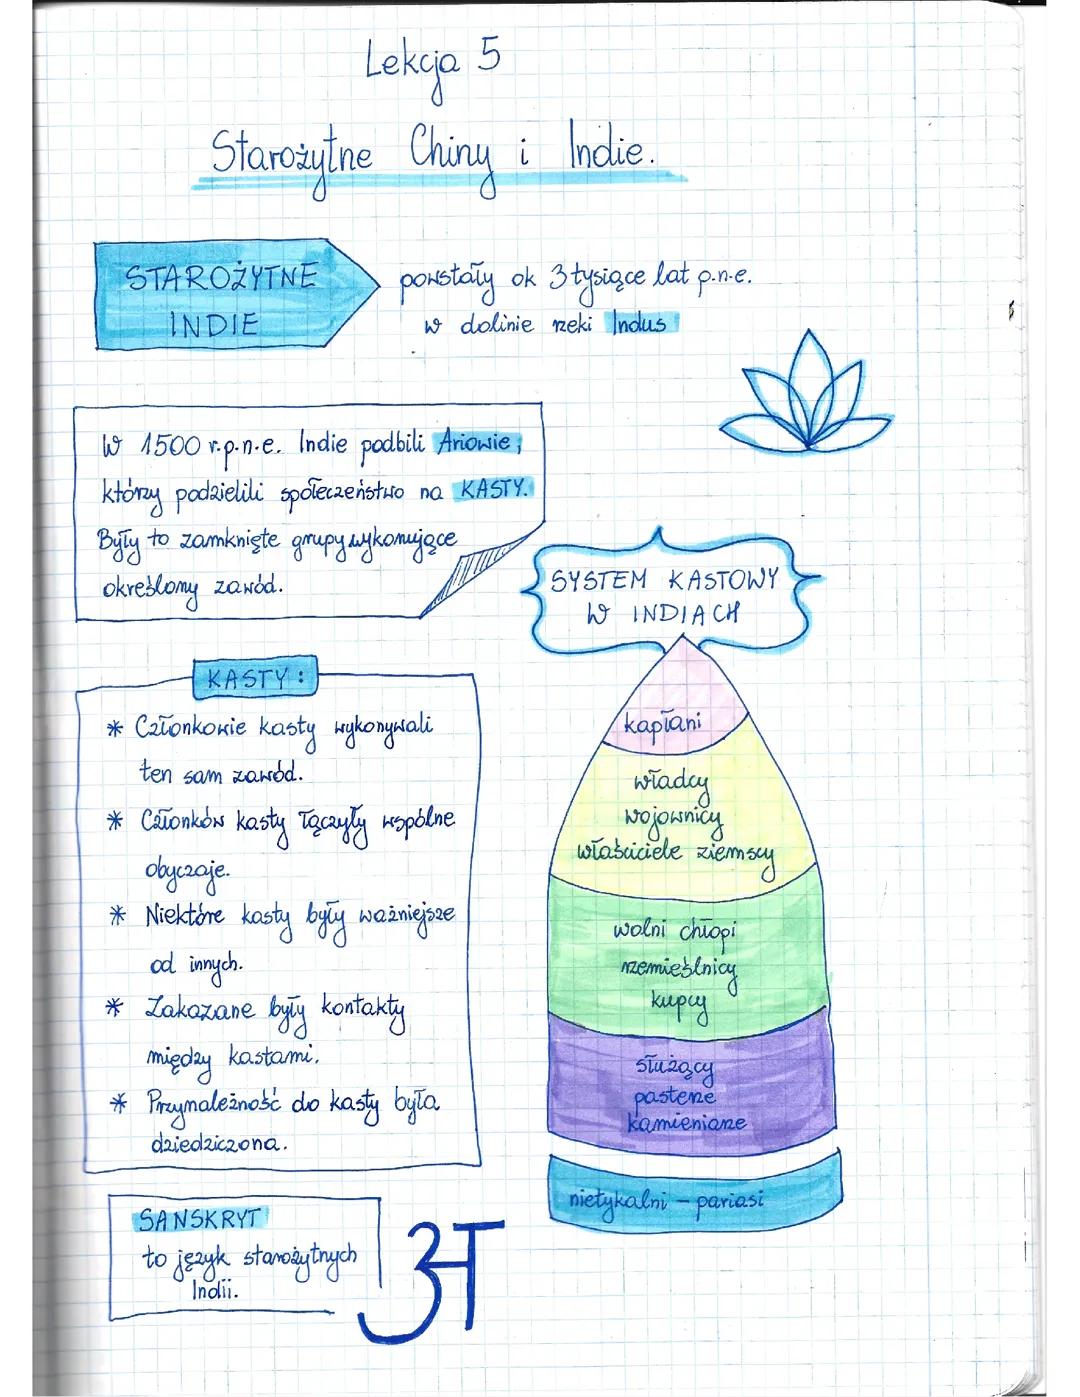 Lekcja 5
Starożytne Chiny i Indie.
STAROŻYTNE
INDIE
powstały ok 3 tysiące lat p.n.e.
w dolinie rzeki Indus
W 1500 r.p.n.e. Indie podbili Ariowie,
którzy podzielili społeczeństwo na KASTY.
Były to zamknięte grupy wykonujące
określony zawód.
KASTY:
* Członkowie kasty wykonywali
ten sam zawód.
* Członków kasty łączyły wspólne
obyczaje.
* Niektóre kasty były ważniejsze
od innych.
* Zakazane były kontakty
między kastami.
* Przynależność do kasty była
dziedziczona.
SYSTEM KASTOWY
W INDIACH
kapłani
władcy
wojownicy
właściciele ziemscy
wolni chłopi
rzemieślnicy
kupcy
służący
pasterze
kamieniarze
nietykalni - pariasi
SANSKRYT
to język starożytnych
Indii.
अ